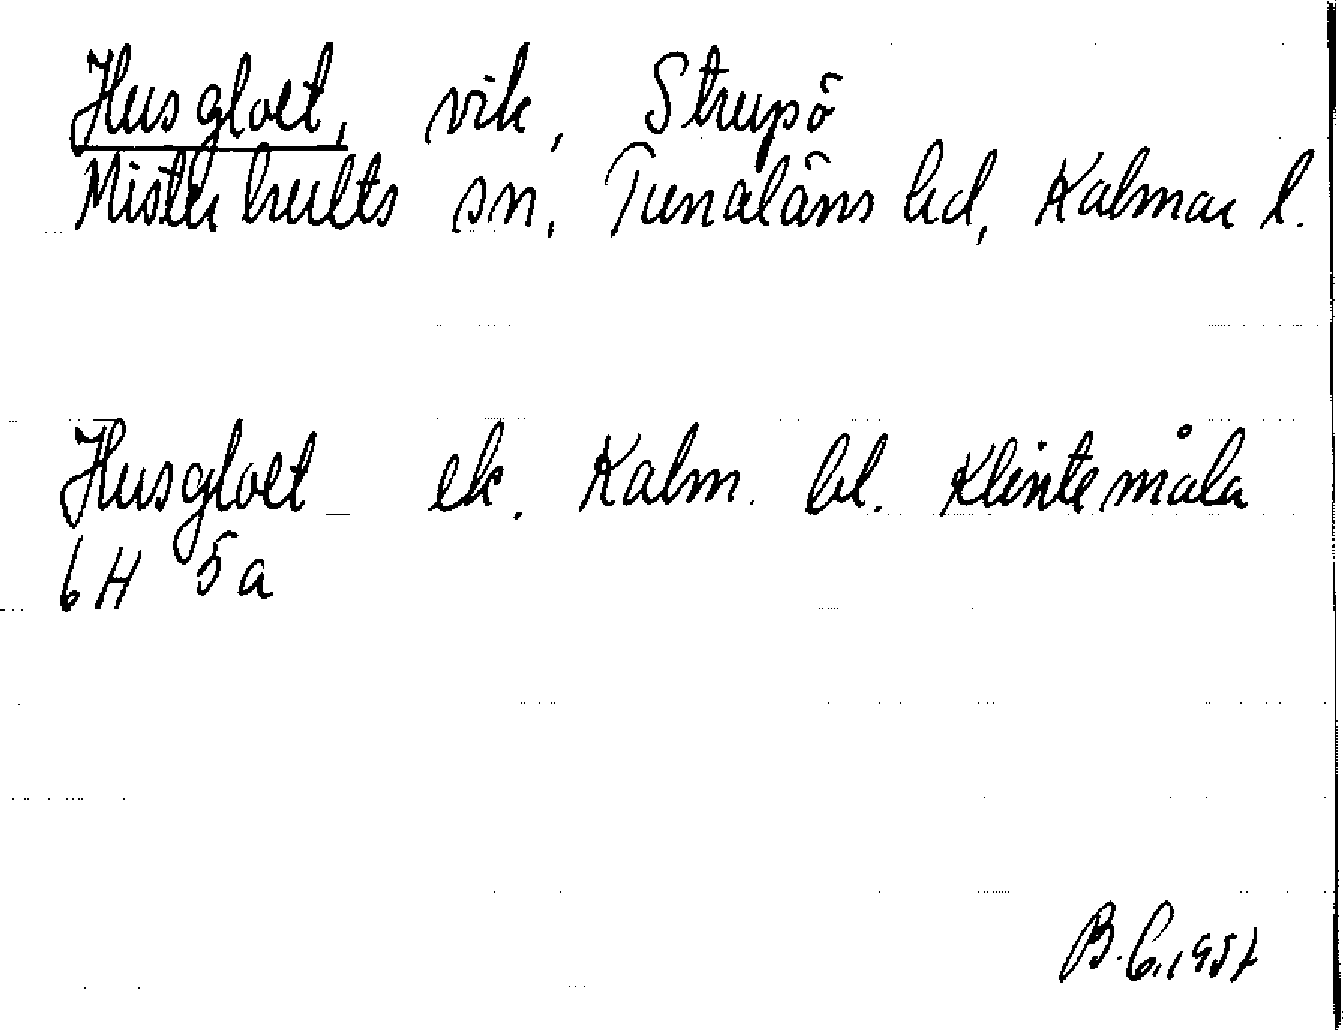 Husgloet, vik, Strupö
Misterhults sn, Tunaläns hd, Kalmar l.
Husgloet ek. Kalm. bl. Klintemåla
6H 5a
B.G. 1957